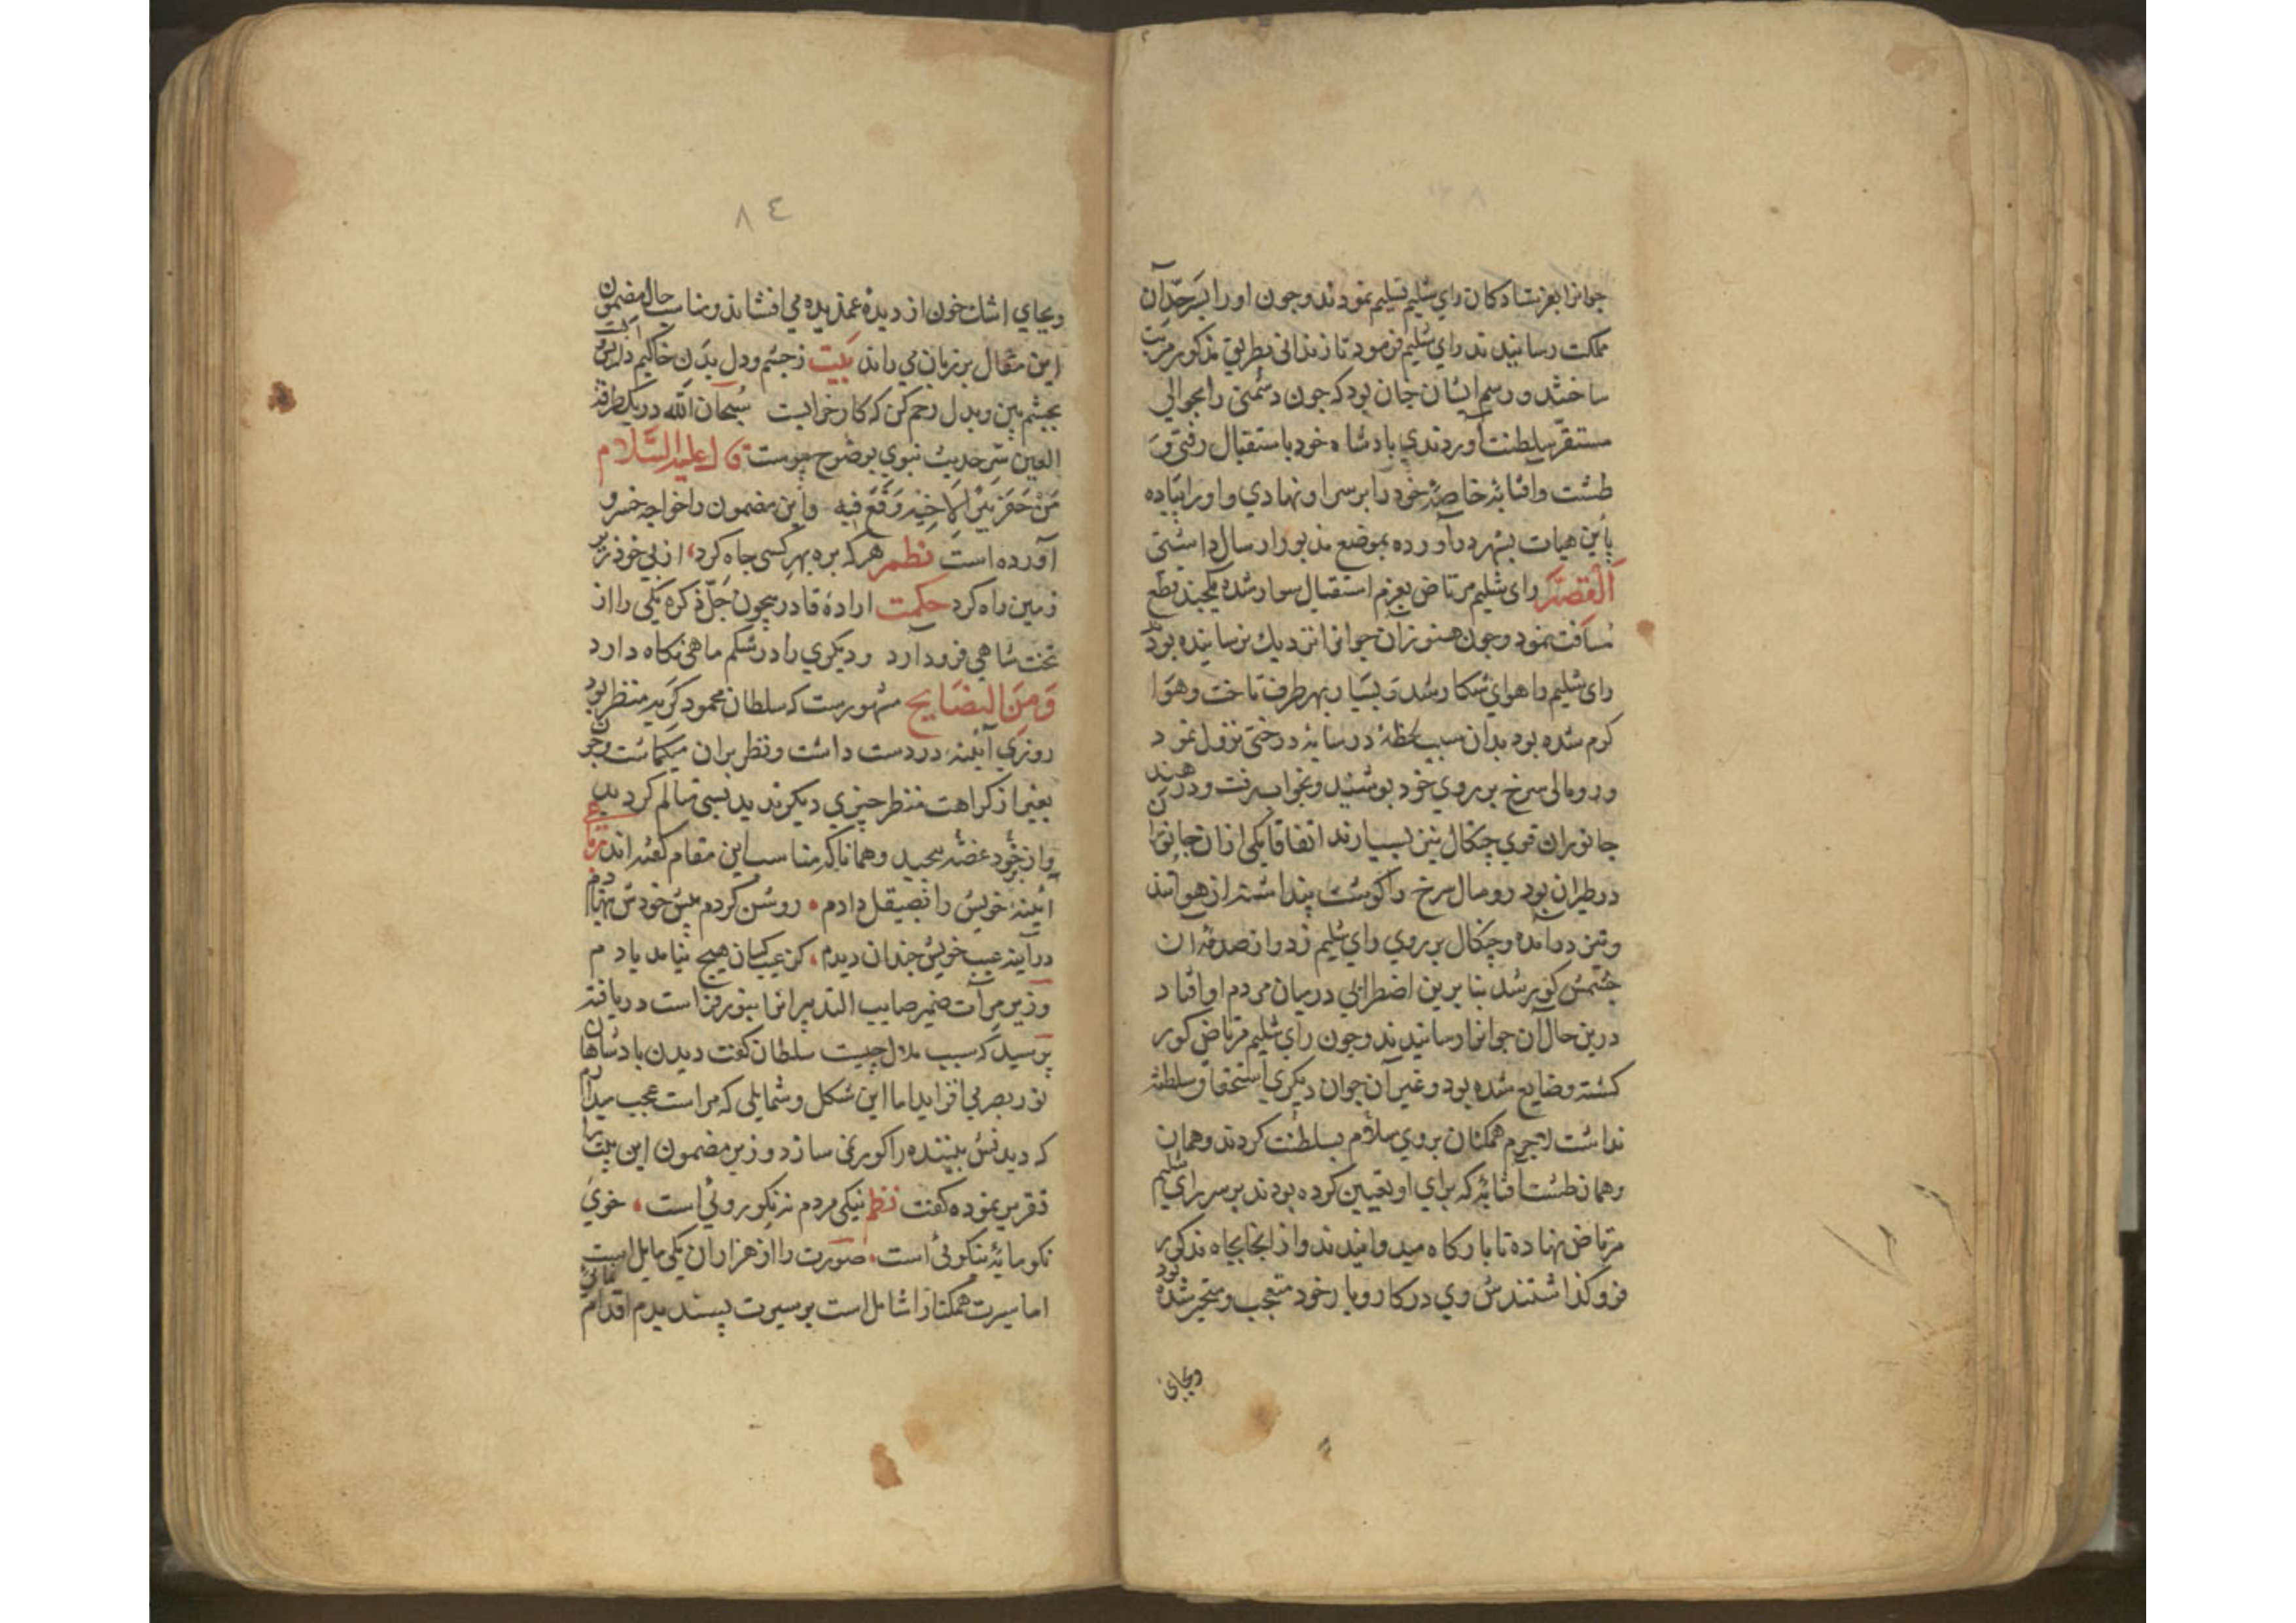 جوانرا بفرستادکان رای شلیم تسلیم نمودند وجون اورا بسرحد آن
مملکت رسانیدند رای شلیم فرمود تا زندانی بطریق مذکور مرتب
ساختند و رسم ایشان جنان بود که جون دشمنی را بحوالی
مستقر سلطنت آوردندی بادشاه خود باستقبال رفتی و
طشت وافتابهٔ خاصهٔ خود را بر سر او نهادی و اورا پیاده
باین هیات بشهر درآورده بموضع مذبور ارسال داشتی
القصه رای شلیم مرتاض بعزم استقبال سوار شده یکجند قطع
مسافت نمود وجون هنوز آن جوانرا نزدیك نرسانیده بود
رای شلیم را هوای شکار شد و بسیار بهر طرف تاخت وهوا
کرم شده بود بدان سبب لحظهٔ در سایهٔ درختی نزول نمود
ورومالی سرخ بر روی خود بوشید وبخواب رفت ودر هند
جانوران قوی چنکال تیز بسیارند اتفاقا یکی ازان جانوران
در طیران بود رومال سرخ را کوشت پنداشته از هوا تند
وتیز درآمده وچنکال بر روی رای شلیم زد واز صدمهٔ آن
چشمش کور شد بنابرین اضطرابی درمیان مردم او افتاد
درین حال آن جوانرا رسانیدند وجون رای شلیم مرتاض کور
کشته وضایع شده بود وغیر آن جوان دیکری استحقاق سلطنت
نداشت لاجرم همکنان بروی سلام بسلطنت کردند وهمان
وهمان طشت آفتابه که برای او تعیین کرده بودند بر سر رای شلیم
مرتاض نهاده تا بارکاه میدوانیدند واز انجا بچاه مذکور
فرو کذاشتند وی درکار وبار خود متعجب ومتحیر شده بود
وبجای
٨٤
وبجای اشك خون از دیدهٔ غمدیده می افشاند ومناسب حال مضمون
این مقال بر زبان می راند بیت زجشم ودل بدن خاکیم در آتش وآبست
بجشم بین وبدل رحم کن که کار خرابست سبحان الله در یك طرفة
العین سر حدیث نبوی بوضوح پیوست قال علیه السلام
من حفر بئرا لاخیه وقع فیه واین مضمون را خواجه خسرو
آورده است نظم هر که بره بهر کسی جاه کرد از پی خود زیر
زمین راه کرد حکمت ارادهٔ قادر بیچون جل ذکره یکی را از
تخت شاهی فرود آرد و دیکری را در شکم ماهی نکاه دارد
ومن النصایح مشهورست که سلطان محمود کریه منظر بود
روزی آیینهٔ در دست داشت ونظر بران میکماشت وجون
بغیر از کراهت منظر چیزی دیکر ندید بسی تالم کردید
واز خود غصه پیچید وهمانا که مناسب این مقام کفته اند رباعی
آیینهٔ خویش را بصیقل دادم روشن کردم پیش خودش بنهادم
در آینه عیب خویش جندان دیدم کز عیب کسان هیچ نیامد یادم
وزیر مرآت ضمیر صایب التدبیر انرا بنور فراست دریافته
پرسید که سبب ملال چیست سلطان کفت دیدن بادشاهان
نور بصر می افزاید اما این شکل وشمایلی که مراست عجب میدارم
که دیدنش بیننده را کور نمی سازد وزیر مضمون این بیت را
تقریر نموده کفت نظم نیکی مردم نه نکو روئی است خوی
نکو مایهٔ نیکوئی است صورت را از هزاران یکی مایل است
اما سیرت همکنانرا شامل است بر سیرت پسندیدم اقدام نمائی